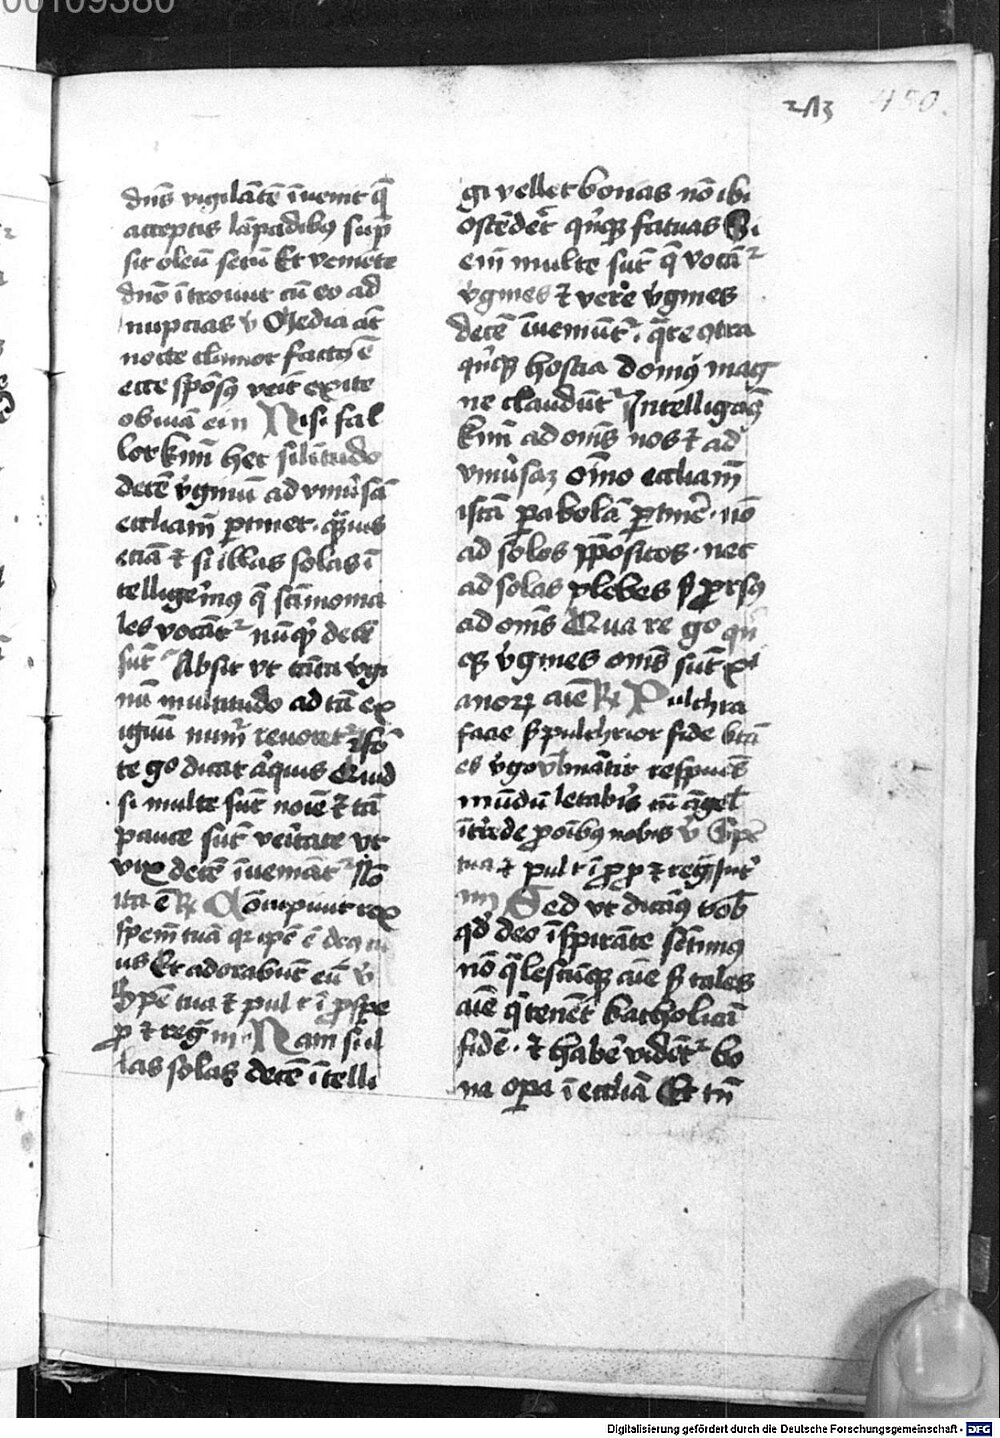 00109380
213 450.
dn̄s vigilātē īuenit q̄
acceptis lāpadibꝰ sup̄
sit oleū secū Et veniēte
dn̄o ītroiuit cū eo ad
nuptias v̓ Media at̄
nocte clamor factꝰ ē
ecce spōsꝰ veit exite
obuiā ei Nisi fal
lor kmi hec silitudo
decē v̓ginū ad vniu̓sā
eccliam ptinet . quis
etiā ⁊ si illas solas ī
tellige̓mꝰ q̄ sctimonia
les vocāt᷑ nūqd decē
sūt Absit vt tāta v̓gi
nū multitudo ad tā ex
iguū num̄ reuocet᷑ ꝫ fo
te go dicat aquis Quid
si multe sūt noīe ⁊ tā
pauce sūt veitate vt
vix decē īueniāt᷑ Nō
ita ē ℞ Cōcupiuit rex
spem tuā qr ipe ē deꝰ tu
us Et adorabūt eū v̓
Spē tua ⁊ pul t ī pspe
p ⁊ reḡ m Nam si il
las solas decē ītelli
gi vellet bonas nō ibi
ostēdet᷑ qnqꝫ fatuas Si
em multe sūt q̄ vocāt᷑
v̓gines ⁊ vere v̓gines
decē īueniūt᷑ . q̄re ɔtra
qnqꝫ hostia domꝰ mag
ne claudūt᷑ Intelligamꝰ
kmi ad om̄s nos ⁊ ad
vniu̓saꝫ om̄o eccliam
istā pabolā ptinē . nō
ad solos ppōsitos . nec
ad solas plebes sꝫ prsꝰ
ad om̄s Qua re go qn
qꝫ v̓gines om̄s sūt xi
anoꝝ aīe ℞ Pulchra
facie sꝫ pulchrior fide bt̄a
es v̓go respuēs
mūdū letab̓is cū āgel
īt̓cede p oībꝰ nobis v̓ Spē
tua ⁊ pul t ī p p ⁊ reḡ
Sed vt dicāꝰ vob̄
qd deo īspirāte sētimꝰ
nō q̄lescūqꝫ aīe sꝫ tales
aīe q̄ tenēt katholicā
fidē . ⁊ habē vidēt᷑ bo
na opa ī eccliā Et tn̄
Digitalisierung gefördert durch die Deutsche Forschungsgemeinschaft - DFG